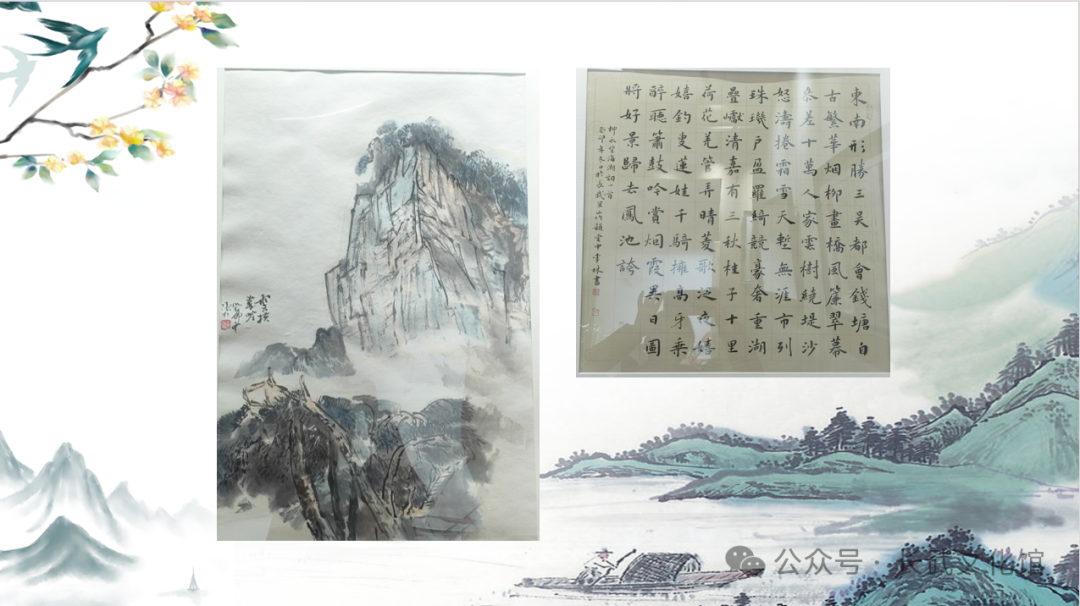 東南形勝三吳都會錢塘自
古繁華烟柳畫橋風簾翠幕
叅差十萬人家雲樹繞堤沙
怒濤捲霜雪天塹無涯市列
珠璣戶盈羅綺競豪奢重湖
疊巘清嘉有三秋桂子十里
荷花羌管弄晴菱歌泛夜嬉
嬉釣叟蓮娃千騎擁高牙乘
醉聽簫鼓吟賞烟霞異日圖
將好景歸去鳳池誇
柳永望海潮詞一首
雲橫
秦嶺
公众号 · 长武文化馆